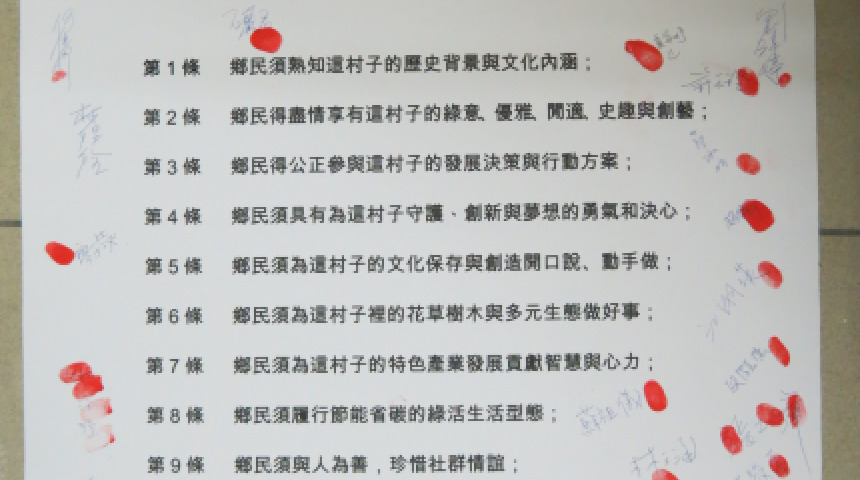 第1條 鄉民須熟知這村子的歷史背景與文化內涵；
第2條 鄉民得盡情享有這村子的綠意、優雅、閒適、史趣與創藝；
第3條 鄉民得公正參與這村子的發展決策與行動方案；
第4條 鄉民須具有為這村子守護、創新與夢想的勇氣和決心；
第5條 鄉民須為這村子的文化保存與創造開口說、動手做；
第6條 鄉民須為這村子裡的花草樹木與多元生態做好事；
第7條 鄉民須為這村子的特色產業發展貢獻智慧與心力；
第8條 鄉民須履行節能省碳的綠活生活型態；
第9條 鄉民須與人為善，珍惜社群情誼；